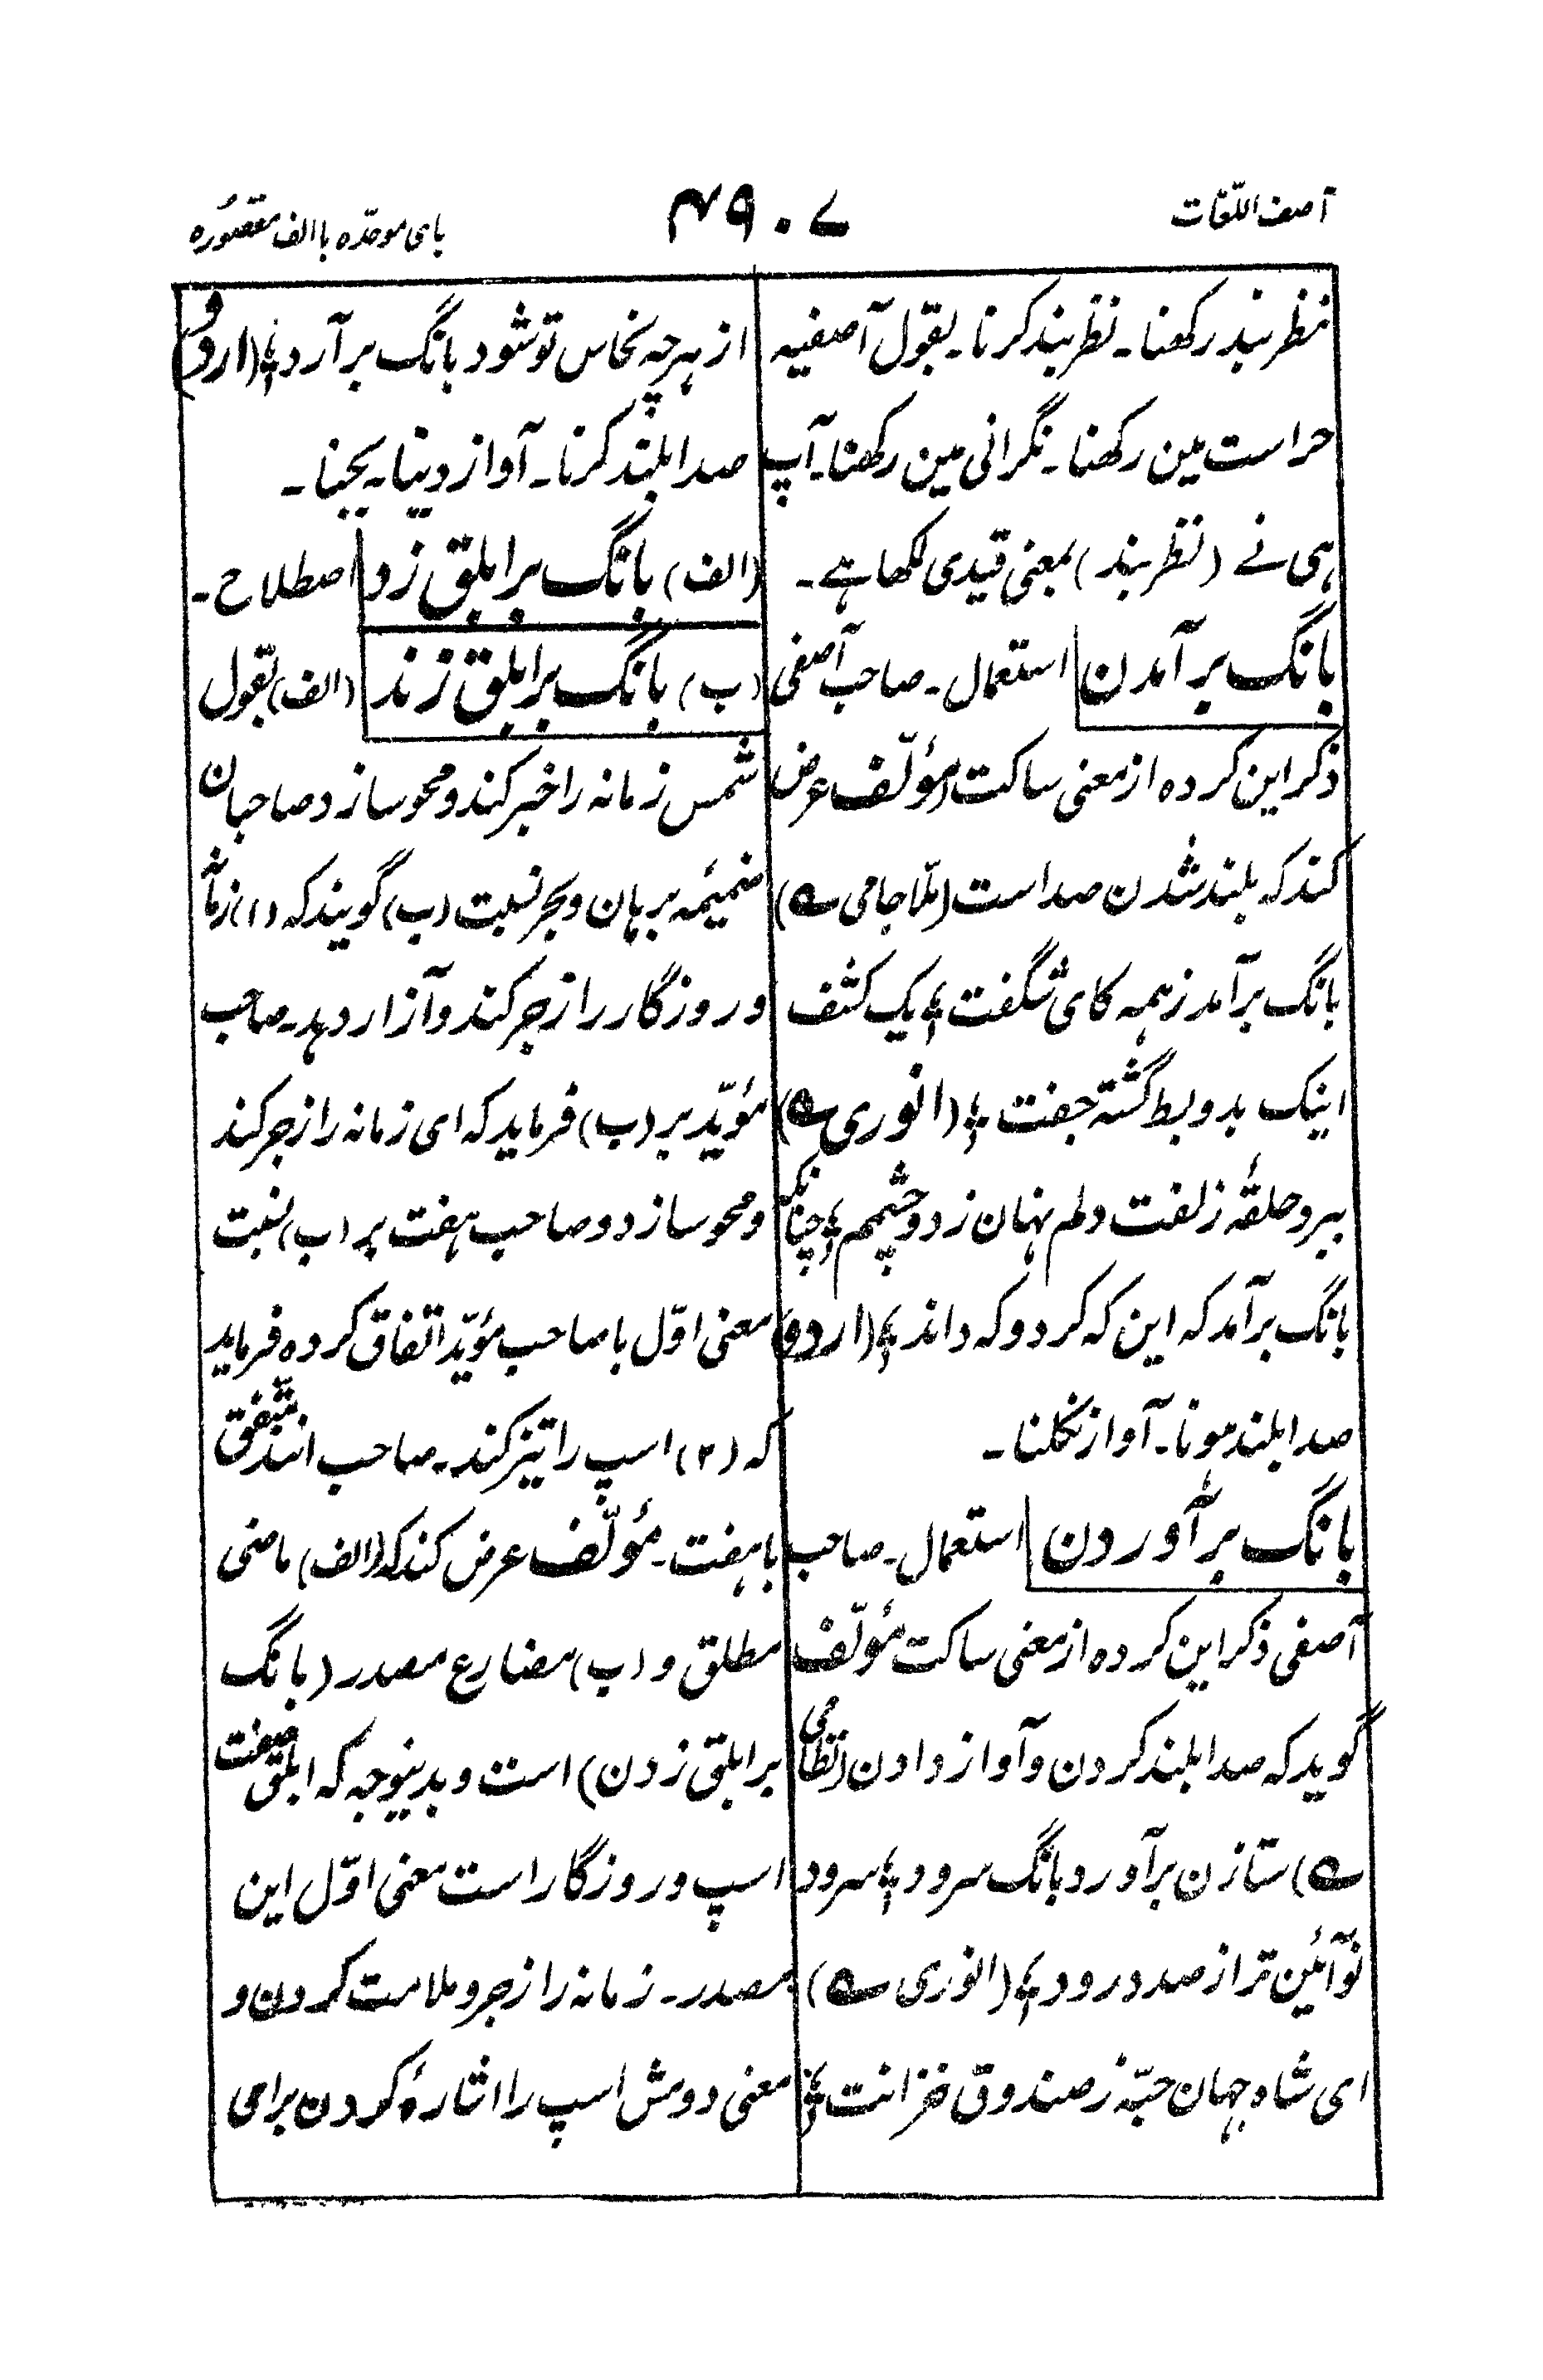 آصف اللغات
۴۹۰۷
بای موحدّه با الف مقصوره
نظر بند رکھنا۔ نظر بند کرنا۔ بقول آصفیہ
حراست مین رکھنا۔ نگرانی مین رکھنا۔ آپ
ہی نے (نظر بند) بمعنی قیدی لکھا ہے۔
بانگ بر آمدن استعمال۔ صاحب آصفی
ذکر این کردہ از معنی ساکت (مؤلّف عرض
کند کہ بلند شدن صداست (ملّا جامی ؎)
بانگ بر آمد ز ہمہ کای شگفت ؛ یک کشف
اینک بدو بط گشتہ جفت ؛ (انوری ؎)
ببرد حلقۂ زلفت دلم نہان ز دو چشمم ؛ چنانکہ
بانگ بر آمد کہ این کہ کرد و کہ داند ؛ (اردو)
صدا بلند ہونا۔ آواز نکلنا۔
بانگ بر آوردن استعمال۔ صاحب
آصفی ذکر این کردہ از معنی ساکت مؤلّف
گوید کہ صدا بلند کردن و آواز دادن (نظامی
؎) ستا زن بر آورد بانگ سرود ؛ سرود
نو آئین تر از صد درود ؛ (انوری ؎)
ای شاہ جہان حبّہ ز صندوق خزانت ؛
از ہرچہ نخاس تو شود بانگ بر آرد ؛ (اردو)
صدا بلند کرنا۔ آواز دینا۔ بجنا۔
(الف) بانگ بر ابلق زد اصطلاح۔
(ب) بانگ بر ابلق زند (الف) بقول
شمس زمانہ را خبر کند و محو سازد و صاحبان
ضمیمہ برہان و بحر نسبت (ب) گویند کہ (۱) زمانہ
و روزگار را زجر کند و آزار دہد۔ صاحب
مؤیّد بر (ب) فرماید کہ ای زمانہ را زجر کند
و محو سازد و صاحب ہفت بر (ب) نسبت
معنی اوّل با صاحب مؤیّد اتفاق کردہ فرماید
کہ (۲) اسپ را تیز کند۔ صاحب انند متّفق
با ہفت۔ مؤلّف عرض کند کہ (الف) ماضی
مطلق و (ب) مضارع مصدر (بانگ
بر ابلق زدن) است و بدینوجہ کہ ابلق صفت
اسپ و روزگار است معنی اوّل این
مصدر۔ زمانہ را زجر و ملامت کردن و
معنی دومش اسپ را اشارہ کردن برای